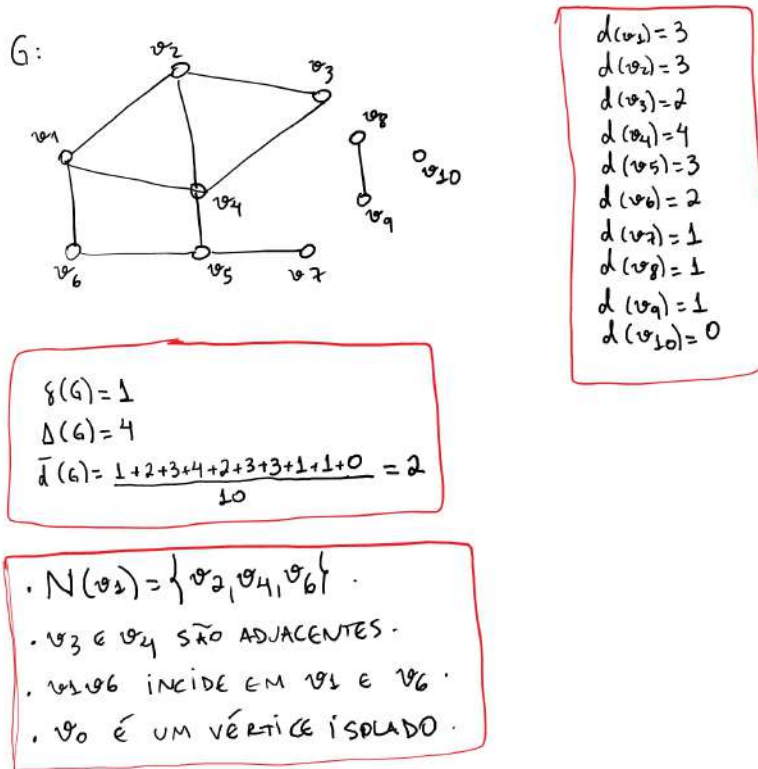 G:
v2
v3
v1
v8
v10
v4
v9
v6
v5
v7
d(v1)=3
d(v2)=3
d(v3)=2
d(v4)=4
d(v5)=3
d(v6)=2
d(v7)=1
d(v8)=1
d(v9)=1
d(v10)=0
δ(G)=1
Δ(G)=4
d̄(G)= 1+2+3+4+2+3+3+1+1+0 = 2
10
. N(v1)={v2,v4,v6}.
. v3 E v4 SÃO ADJACENTES.
. v1v6 INCIDE EM v1 E v6.
. v0 É UM VÉRTICE ISOLADO.